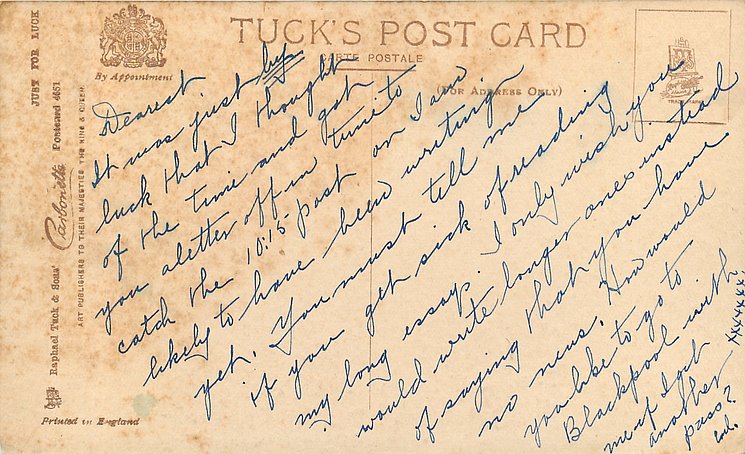 JUST FOR LUCK
Raphael Tuck & Sons' "Carbonette" Postcard 4651
ART PUBLISHERS TO THEIR MAJESTIES THE KING & QUEEN.
By Appointment
TUCK'S POST CARD
CARTE POSTALE
(FOR ADDRESS ONLY)
TRADE MARK
Printed in England
Dearest
It was just by
luck that I thought
of the time and got
you a letter off in time to
catch the 10:15 post or I am
likely to have been writing
yet. You must tell me
if you get sick of reading
my long essay. I only wish you
would write longer ones instead
of saying that you have
no news. How would
you like to go to
Blackpool with
me if I got
another
pass?
xxxxxxx